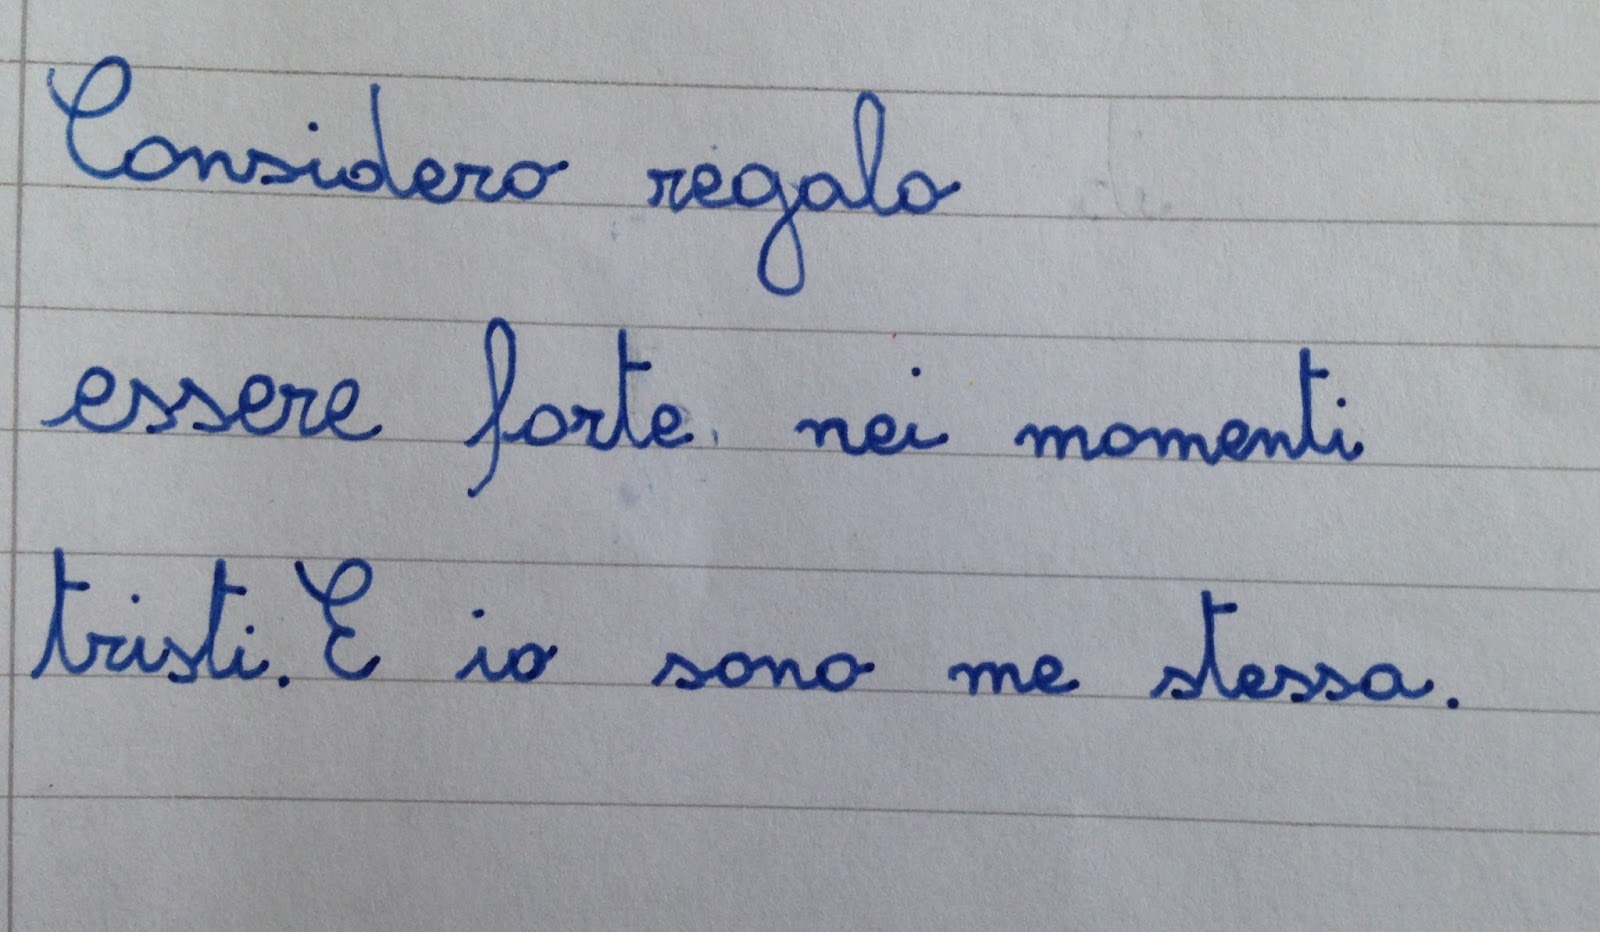 Considero regalo
essere forte nei momenti
tristi. E io sono me stessa.